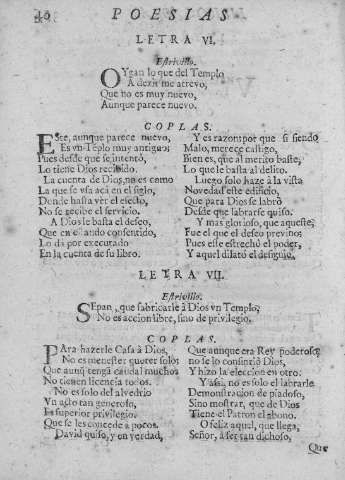 40
POESIAS
LETRA VI.
Estrivillo.
OYgan lo que del Templo
A dezir me atrevo,
Que no es muy nuevo,
Aunque parece nuevo.
COPLAS.
ESte, aunque parece nuevo,
Es vn Tẽplo muy antiguo;
Pues desde que se intentò,
Lo tiene Dios recibido.
La cuenta de Dios, no es como
La que se vsa acà en el siglo,
Donde hasta vèr el efecto,
No se recibe el servicio.
A Dios le basta el deseo,
Que en estando consentido,
Lo dà por executado
En la cuenta de su libro.
Y es razon; por que si siendo
Malo, merece castigo,
Bien es, que al merito baste,
Lo que le basta al delito.
Luego solo haze à la vista
Novedad este edificio,
Que para Dios se labrò
Desde que labrarse quiso.
Y mas glorioso, que aqueste;
Fue el que el deseo previno;
Pues este estrechò el poder,
Y aquel dilatò el designio.
LETRA VII.
Estrivillo.
SEpan, que fabricarle à Dios vn Templo,
No es accion libre, sino de privilegio.
COPLAS.
PAra hazerle Casa à Dios,
No es menester querer solo;
Que aunq̃ tengã caudal muchos
No tienen licencia todos.
No es solo del alvedrio
Vn acto tan generoso,
Es superior privilegio,
Que se les concede à pocos.
David quiso, y en verdad,
Que aunque era Rey poderoso,
no se lo consintiò Dios,
Y hizo la eleccion en otro.
Y assi, no es solo el labrarle
Demonstracion de piadoso,
Sino mostrar, que de Dios
Tiene el Patron el abono.
O feliz aquel, que llega,
Señor, à ser tan dichoso,
Que